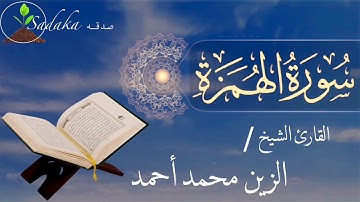 Sadaka صدقه
سُورَةُ الهُمَزَة
القارئ الشيخ /
الزين محمد أحمد